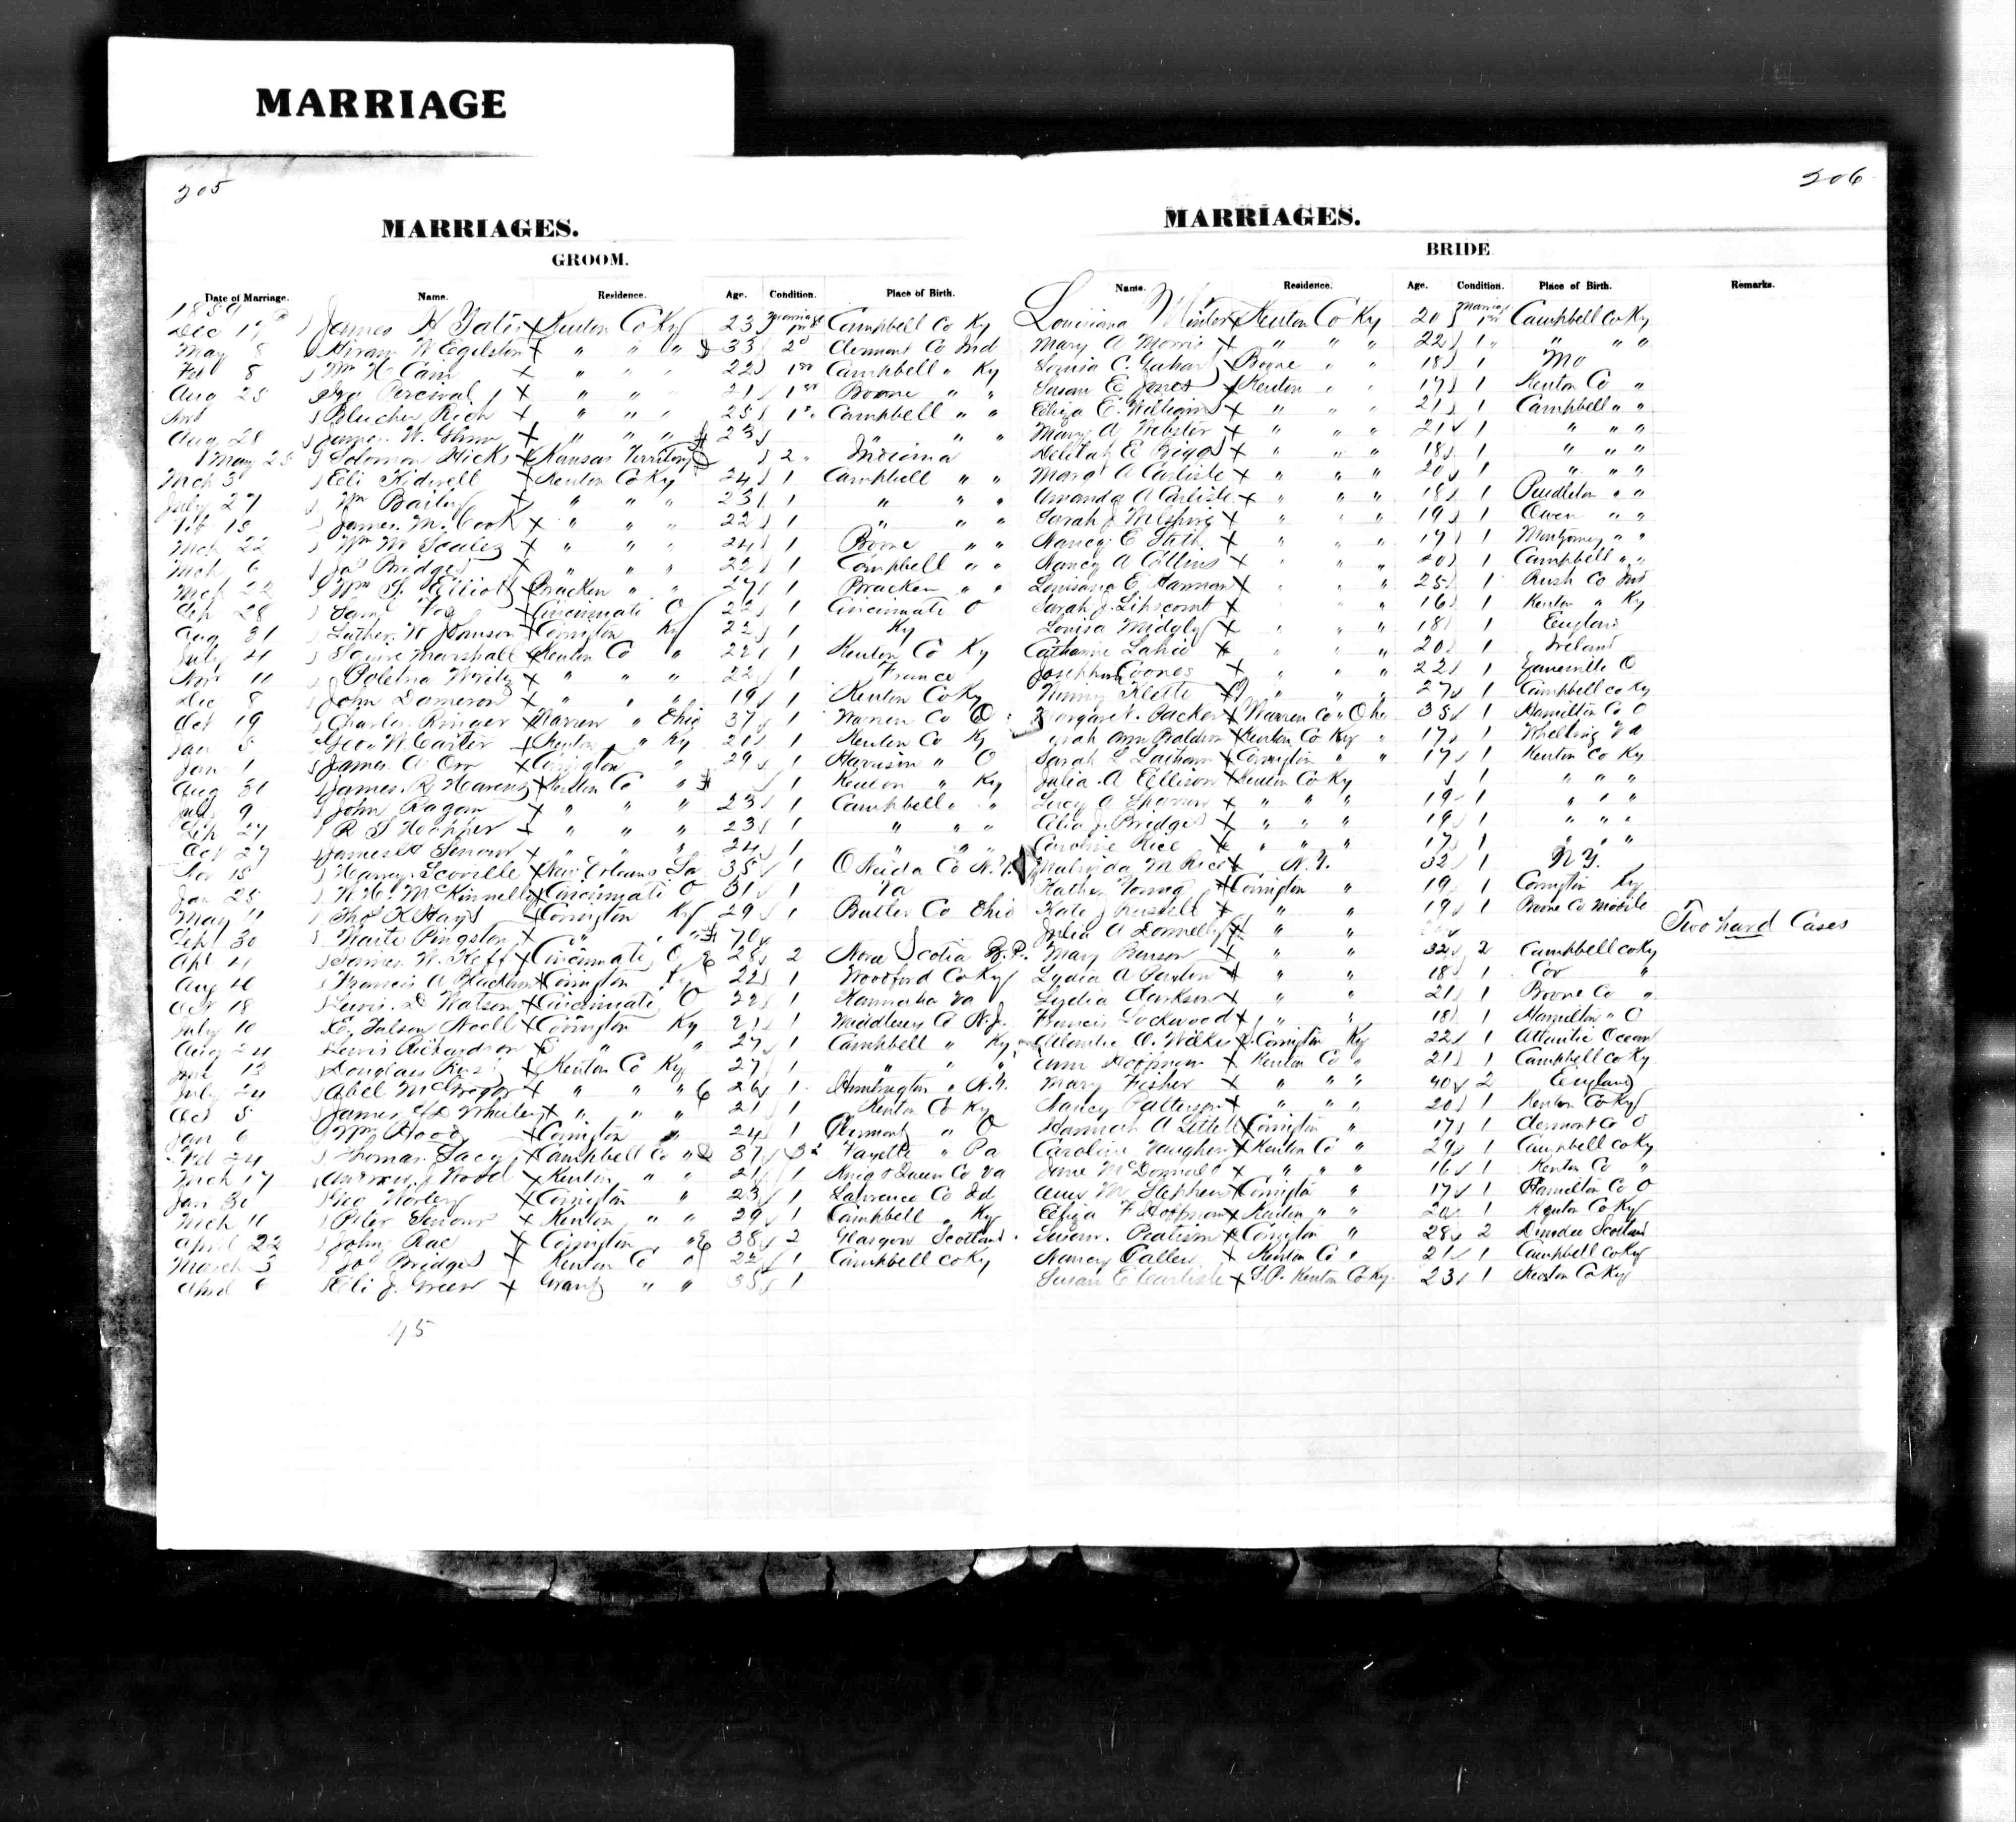 MARRIAGE
205
206
MARRIAGES.
MARRIAGES.
GROOM.
BRIDE
Date of Marriage. Name. Residence. Age. Condition. Place of Birth. Name. Residence. Age. Condition. Place of Birth. Remarks.
1859
Dec 17 James H Yates Kenton Co Ky 23 marriage 1st Campbell Co Ky Louisiana Minter Kenton Co Ky 20 marriag 1st Campbell Co Ky
May 8 Hiram W Egelston " " " 33 2d Clermont Co Ind Mary A Morris " " " 22 1 " " " "
Feb 8 Wm H Cam " " " 22 1st Campbell " Ky Louisa C. Boone " " 18 1 Mo
Aug 25 Ira Percival " " " 21 1st Boone " " Susan E Jones Kenton " " 17 1 Kenton Co "
Blucher Rich " " " 25 1st " Campbell " " Eliza E. Williams " " " 21 1 Campbell " "
Aug 28 James W. " " " 23 " " " Mary A Webster " " " 21 1 " " "
May 25 Solomon Hicks Kansas Territory 2 " Indiana Delilah E Riggs " " " 18 1 " " "
Mch 3 Eli Kidwell Kenton Co Ky 24 1 Campbell " " Marg A Carlisle " " " 20 1 " " "
July 27 Wm Bailey " " " 23 1 " " " Amanda A Carlisle " " " 18 1 Pendleton " "
Feb 15 James M. Cook " " " 22 1 " " " Sarah J " " " 19 1 Owen " "
Mch 22 Wm M " " " 24 1 Boone " " Nancy E Stith " " " 17 1 Montgomery " "
Mch 6 Jas Bridges " " " 22 1 Campbell " " Nancy A Collins " " " 20 1 Campbell " "
Mch 22 Wm S. Elliott Bracken " " 27 1 Bracken " " Louisiana E. Harmon " " " 25 1 Rush Co Ind
Sep 28 Saml Cincinnati O 22 1 Cincinnati O Sarah J. Lipscomb " " " 16 1 Kenton " Ky
Aug 31 Luther W Johnson Covington Ky 22 1 Ky Louisa Midgly " " " 18 1 England
July 4 Squire Marshall Kenton Co " 22 1 Kenton Co Ky Catharine " " " 20 1 Ireland
Nov 11 " " " 22 1 France Josephine Coones " " " 22 1 Zanesville O
Dec 8 John Dameron " " " 19 1 Kenton Co Ky " " " 27 1 Campbell co Ky
Oct 19 Charles Ringer Warren " Ohio 37 1 Warren Co O Margaret Packer Warren Co " Ohio 35 1 Hamilton Co O
Jan 5 Geo W. Carter Kenton " Ky 21 1 Kenton Co Ky Ann Kenton Co Ky " 17 1 Wheeling Va
Jan 1 James A Orr Covington " 29 1 Harrison " O Sarah L Covington " " 17 1 Kenton Co Ky
Aug 31 James R Havens Kenton Co " 1 Kenton " Ky Julia A Ellison Kenton Co Ky 1 " " "
July 9 John Ragan " " " 23 1 Campbell " " Lucy A Sparrow " " " 19 1 " " "
Sep 27 R S Hopper " " " 23 1 " " " Celia J. Bridges " " " 19 1 " " "
Oct 27 James H Senour " " " 24 1 " " " Caroline Rice " " " 17 1 " " "
Nov 15 Harvey Scoville New Orleans La 35 1 Oneida Co N.Y. Malvinda M Rice N.Y. 32 1 N Y.
Jan 25 Cincinnati O 31 1 Va Young Covington " 19 1 Covington Ky
May 11 Thos K Hays Covington Ky 29 1 Butler Co Ohio Kate J Russell " " 19 1 Boone Co
Sept 30 Waite Pingston " " " 70 Julia A Donnelly " " Two hard Cases
Apl 4 James W. Cincinnati O 28 2 Nova Scotia B.P. Mary Benson " " 32 2 Campbell co Ky
Aug 16 Francis A Covington Ky 22 1 Woodford Co Ky Lydia A " " 18 1 Cov "
Oct 18 Lewis D Watson Cincinnati O 22 1 Va Lydia Clarkson " " 21 1 Boone Co "
July 10 Covington Ky 21 1 Middlesex Co N.J. Francis Lockwood " " 18 1 Hamilton " O
Aug 24 Lewis Richardson " " 27 1 Campbell " Ky Atlantic O. Wilkes Covington Ky 22 1 Atlantic Ocean
13 Douglass Kenton Co Ky 27 1 " " " Ann Hoffman Kenton Co " 21 1 Campbell co Ky
July 24 Abel " " " 26 1 Huntington " N.Y. Mary Fisher " " " 40 2 England
Oct 5 James " " " 21 1 Kenton Co Ky Nancy Patterson " " " 20 1 Kenton Co Ky
Jan 6 Wm Hood Covington " 24 1 Clermont " O Hannah A Littell Covington " 17 1 Clermont Co O
Feb 24 Thomas Campbell Co " 37 Fayette " Pa Caroline Vaughn Kenton Co " 29 1 Campbell co Ky
Mch 17 J Wood Kenton " " 21 1 King & Queen Co Va Jane McDonnald " " " 16 1 Kenton Co "
Jan 30 Covington " 23 1 Lawrence Co Id M Stephens Covington " 17 1 Hamilton Co O
Mch 11 Peter Senour Kenton " " 29 1 Campbell " Ky Eliza F Hoffman Kenton " " 20 1 Kenton Co Ky
April 22 John Rae Covington " 38 2 Glasgow Scotland Covington " 28 2 Dundee Scotland
March 3 Jas Bridges Kenton Co " 22 1 Campbell co Ky Nancy Kenton Co " 21 1 Campbell co Ky
April 6 Eli J. Green Grant " " 35 1 Susan E Carlisle S.P. Kenton Co Ky 23 1 Kenton Co Ky
45